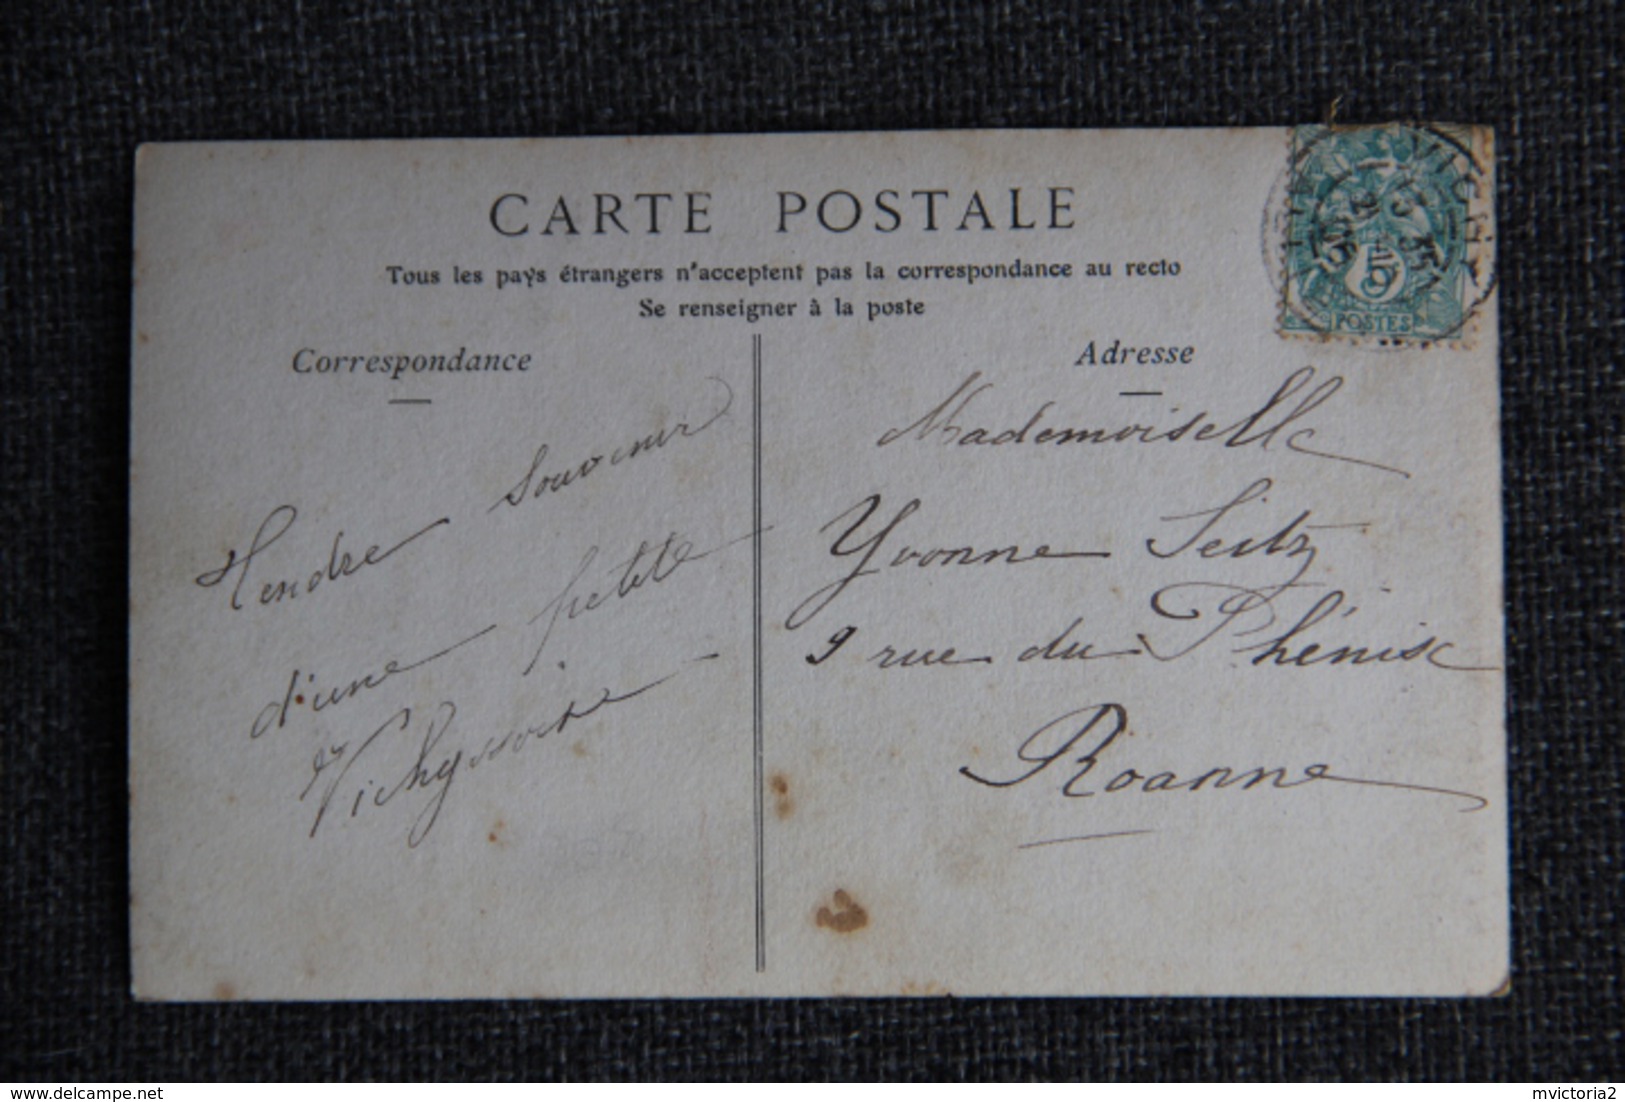 CARTE POSTALE
Tous les pays étrangers n'acceptent pas la correspondance au recto
Se renseigner à la poste
Correspondance
Tendre souvenir
d'une petite
Vichyssoise
Adresse
Mademoiselle
Yvonne Seitz
9 rue du Phénix
Roanne
VICHY
ALLIER
5
POSTES
mvictoria2